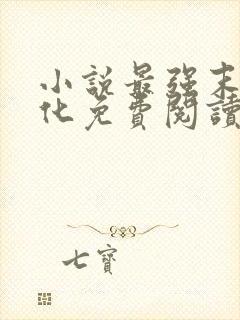 小説最強末
化免費閱讀
七寶